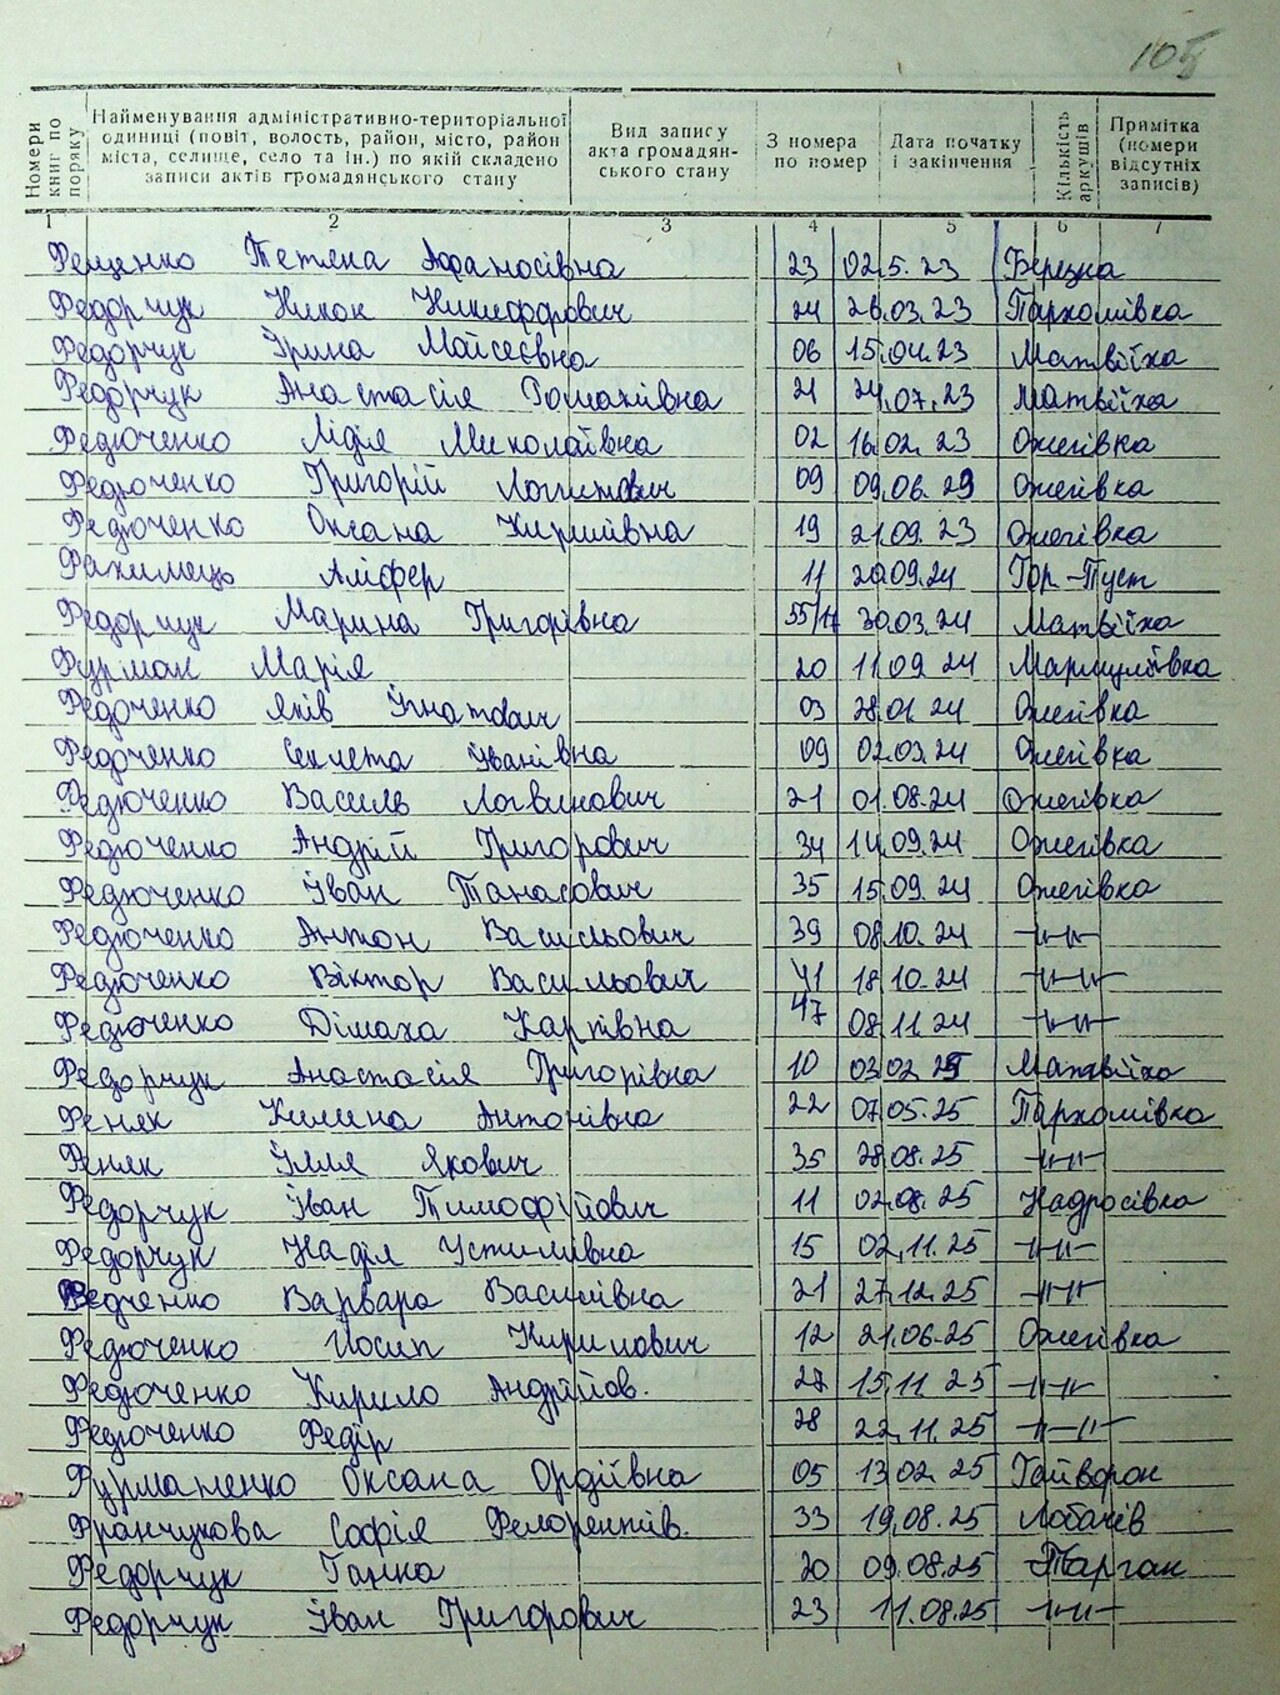 105
Номери книг по порядку
Найменування адміністративно-територіальної одиниці (повіт, волость, район, місто, район міста, селище, село та ін.) по якій складено записи актів громадянського стану
Вид запису акта громадянського стану
З номера по номер
Дата початку і закінчення
Кількість аркушів
Примітка (номери відсутніх записів)
1 2 3 4 5 6 7
Фещенко Тетяна Афанасівна 23 02.5.23 Березна
Федорчук Никон Никифорович 24 26.03.23 Пархомівка
Федорчук Ірина Мойсеєвна 06 15.04.23 Матвіїха
Федорчук Анастасія Романівна 21 24.07.23 Матвіїха
Федюченко Лідія Миколаївна 02 16.02.23 Ожегівка
Федюченко Григорій 09 09.06.23 Ожегівка
Федюченко Оксана Кирилівна 19 21.09.23 Ожегівка
Аліфер 11 20.09.24 Гор-Пуст
Федорчук Марина Григорівна 55/17 30.03.24 Матвіїха
Фурман Марія 20 11.09.24 Мармуліївка
Федоченко Яків Ігнатович 03 28.01.24 Ожегівка
Федоченко Секлета Іванівна 09 02.03.24 Ожегівка
Федюченко Василь Логвинович 21 01.08.24 Ожегівка
Федюченко Андрій Григорович 34 14.09.24 Ожегівка
Федюченко Іван Танасович 35 15.09.24 Ожегівка
Федюченко Антон Васильович 39 08.10.24 -//-//-
Федюченко Віктор Васильович 41 18.10.24 -//-//-
Федюченко Карпівна 47 08.11.24 -//-//-
Федорчук Анастасія Григорівна 10 03.02.25 Матвіїха
Феняк Килина Антонівна 22 07.05.25 Пархомівка
Феняк Ілля Якович 35 28.08.25 -//-//-
Федорчук Іван Тимофійович 11 02.08.25 Надросівка
Федорчук Надія Устимівна 15 02.11.25 -//-//-
Федченко Варвара Василівна 21 27.12.25 -//-//-
Федюченко Йосип Кирилович 12 21.06.25 Ожегівка
Федюченко Кирило Андрійов. 27 15.11.25 -//-//-
Федюченко Федір 28 22.11.25 -//-//-
Фурманенко Оксана Ордіївна 05 13.02.25 Гайворон
Франчукова Софія Фелорентів. 33 19.08.25 Лобачів
Федорчук Ганна 20 09.08.25 Тарган
Федорчук Іван Григорович 23 11.08.25 -//-//-